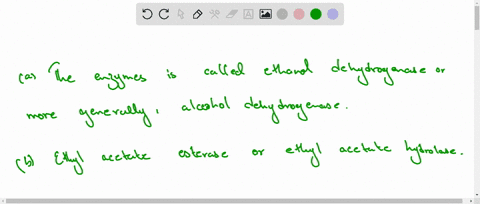 (a) The enzymes is called ethanol dehydrogenase or
more generally, alcohol dehydrogenase.
(b) Ethyl acetate esterase or ethyl acetate hydrolase.